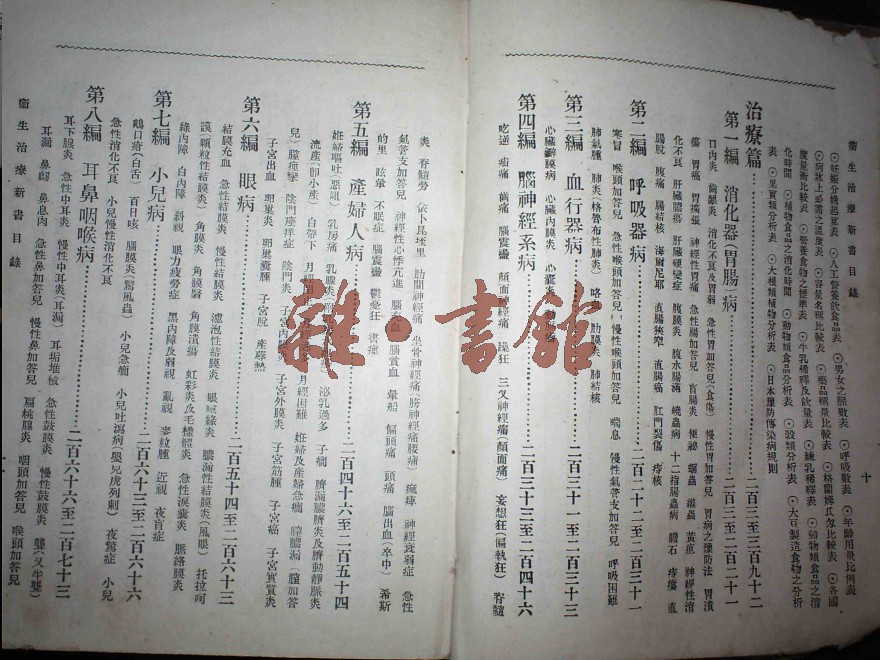 衞生治療新書目錄
十
⊙妊娠分娩起算表 ⊙人工營養飲食品表 ⊙男女之脈數表 ⊙呼吸數表 ⊙年齡用量比例表
⊙病牀上必需之溫度表 ⊙容量名稱比較表 ⊙藥品稱量比較表 ⊙格蘭姆氏分比較表 ⊙各國
度量衡比較表 ⊙營養食物之標準表 ⊙牛乳稀釋及飲量表 ⊙練乳稀釋表 ⊙動物類食品之消
化時間 ⊙植物類食品之消化時間 ⊙動物類食品分析表 ⊙穀類分析表 ⊙大豆製造食物之分析
表 ⊙果實類分析表 ⊙大根類植物分析表 ⊙日本豫防傳染病規則
治療篇
二百三至三百九十二
第一編 消化器(胃腸)病
二百三至二百二十一
口內炎 齒齦炎 急性胃加答兒(食傷) 慢性胃加答兒 胃病之豫防法 胃潰
瘍 胃癌 胃擴張 神經性胃痛 急性腸加答兒 盲腸炎 便祕 蛔蟲 縧蟲 黃疸 神經性消
化不良 肝臟膿瘍 肝臟硬變症 腹膜炎 腹水腸滿 蟯蟲病 十二指腸蟲病 膽石 痔瘻 直
腸脫 腹痛 腸結核 直腸狹窄 直腸癌 肛門裂傷 痔核
第二編 呼吸器病
二百二十二至二百三十一
寒冒 喉頭加答兒 急性喉頭加答兒 慢性喉頭加答兒 喘息 慢性氣管支加答兒 呼吸困難
肺氣腫 肺炎(格魯布性肺炎) 肋膜炎 肺結核
第三編 血行器病
二百三十一至二百三十三
心臟瓣膜病 心臟內膜炎
第四編 腦神經系病
二百三十三至二百四十六
吃逆 齒痛 腦震盪 顏面神經痛 躁狂 三叉神經痛(顏面痛) 妄想狂(偏執狂) 脊髓
炎 脊髓勞 肋間神經痛 坐骨神經痛 神經衰弱症 急性
氣管支加答兒 神經性心悸亢進 腦貧血 暈船 偏頭痛 頭痛 腦出血(卒中) 希斯
的里 眩暈 不眠症 腦震盪 鬱憂狂 書痙
第五編 產婦人病
二百四十六至二百五十四
妊婦嘔吐(惡阻) 乳房痛 乳腺炎 泌乳過多 子癇 臍漏膿臍炎及臍動靜脈炎
流產(卽小產) 白帶下 月經困難 妊婦及產婦急癇 膣膿漏(膣加答
兒) 膣痙攣 陰門瘙痒症 陰門炎 子宮內膜炎 子宮外膜炎 子宮筋腫 子宮癌 子宮實質炎
子宮出血 卵巢炎 卵巢囊腫 子宮脫 產蓐熱
第六編 眼病
二百五十四至二百六十三
結膜充血 急性結膜炎 慢性結膜炎 濾泡性結膜炎 眼瞼緣炎 膿漏性結膜炎(風眼) 托拉呵
護(顆粒性結膜炎) 角膜炎 角膜翳 角膜潰瘍 虹彩炎及毛樣體炎 急性淚囊炎 脈絡膜炎
綠內障 白內障 斜視 眼力疲勞症 黑內障及弱視 亂視 麥粒腫 近視 夜盲症
第七編 小兒病
二百六十三至二百六十六
鵝口瘡(白舌) 百日咳 腦膜炎(驚風蟲) 小兒急癇 小兒吐瀉病(嬰兒虎列剌) 夜驚症 小兒
急性消化不良 小兒慢性消化不良
第八編 耳鼻咽喉病
二百六十六至二百七十三
耳下腺炎 急性中耳炎 慢性中耳炎(耳漏) 耳垢堆積 急性鼓膜炎 慢性鼓膜炎 聾(又半聾)
耳漏 鼻衄 鼻息肉 急性鼻加答兒 慢性鼻加答兒 扁桃腺炎 咽頭加答兒 喉頭加答兒
衞生治療新書目錄
雜·書館